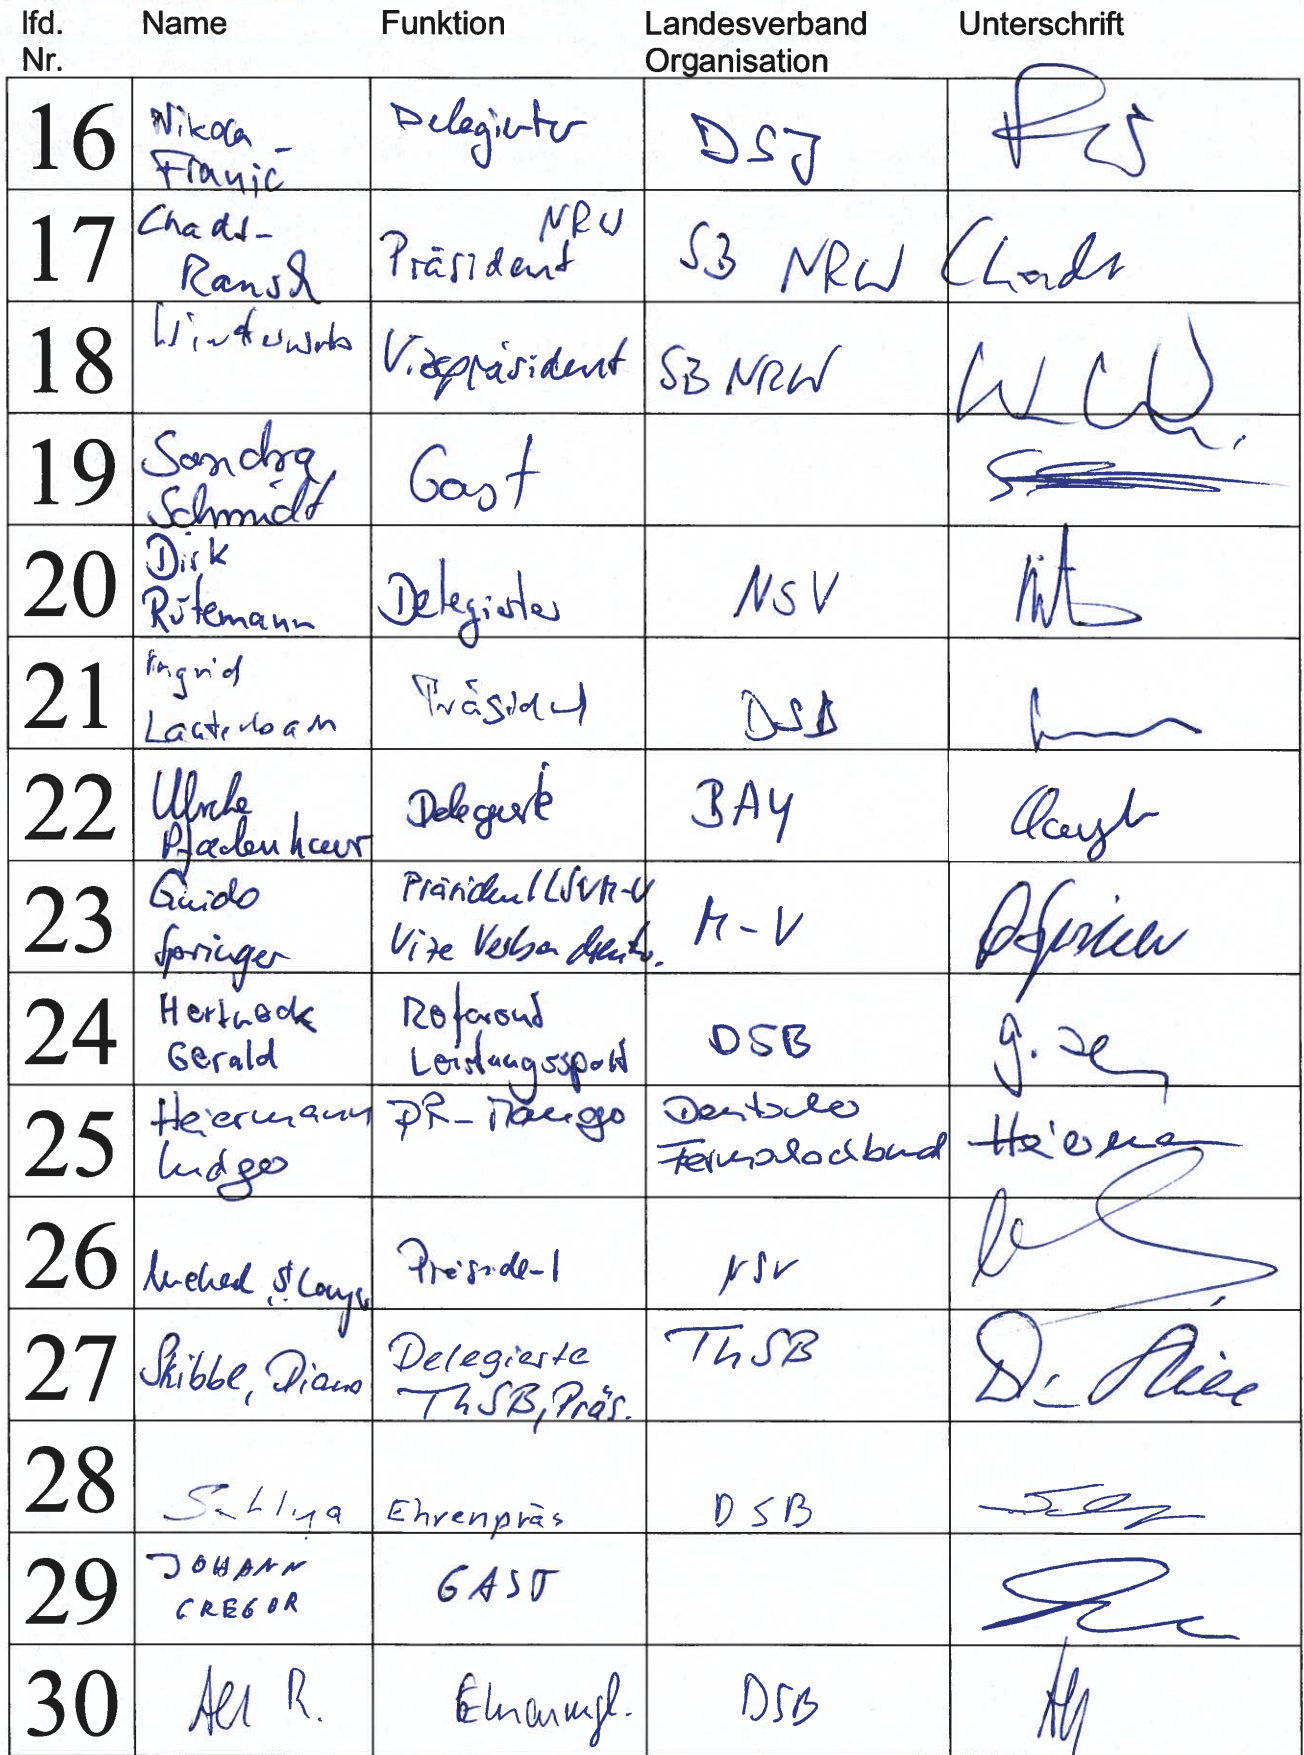 lfd. Nr. Name Funktion Landesverband Organisation Unterschrift
16 Nikola Franić Delegierter DSJ
17 Chadt-Rausch Präsident NRW SB NRW Chadt
18 Winterwerb Vizepräsident SB NRW
19 Sandra Schmidt Gast
20 Dirk Rütemann Delegierter NSV
21 Ingrid Lauterbach Präsident DSB
22 Ulrike Pfadenhauer Delegierte BAY
23 Guido Springer Präsident LSVM-V M-V
Vize
24 Hertneck Gerald Referent Leistungssport DSB
25 Heiermann Ludger Deutscher Fernschachbund
26 Michael S. Langer Präsident NSV
27 Skibbe, Diana Delegierte ThSB, Präs. ThSB
28 Ehrenpräs DSB
29 JOHANN GREGOR GAST
30 R. Ehrenmgl. DSB